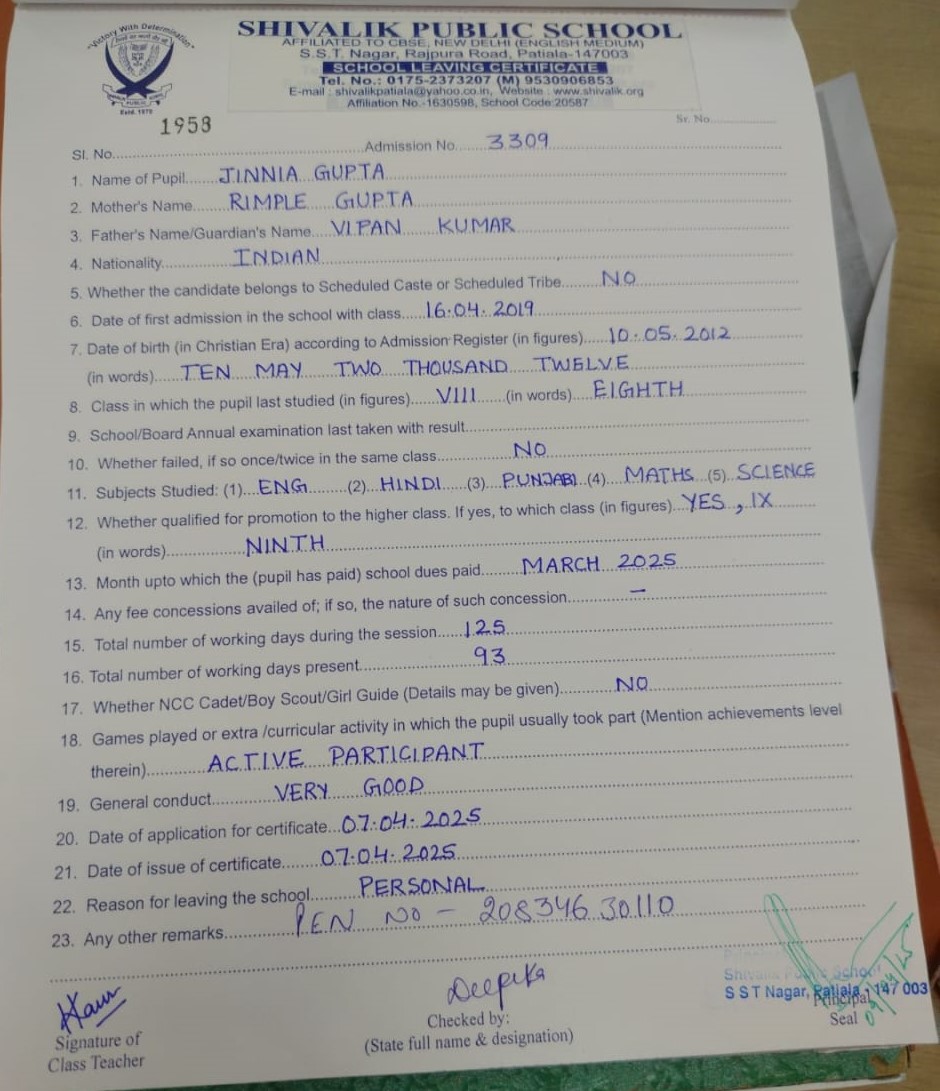 "Victory With Determination"
SHIVALIK PUBLIC SCHOOL
AFFILIATED TO CBSE, NEW DELHI (ENGLISH MEDIUM)
S.S.T. Nagar, Rajpura Road, Patiala-147003
SCHOOL LEAVING CERTIFICATE
Tel. No.: 0175-2373207 (M) 9530906853
E-mail : shivalikpatiala@yahoo.co.in, Website : www.shivalik.org
Affiliation No.-1630598, School Code:20587
Estd. 1975
Sr. No.
Sl. No. 1953 Admission No. 3309
1. Name of Pupil JINNIA GUPTA
2. Mother's Name RIMPLE GUPTA
3. Father's Name/Guardian's Name VIPAN KUMAR
4. Nationality INDIAN
5. Whether the candidate belongs to Scheduled Caste or Scheduled Tribe NO
6. Date of first admission in the school with class 16.04.2019
7. Date of birth (in Christian Era) according to Admission Register (in figures) 10.05.2012
(in words) TEN MAY TWO THOUSAND TWELVE
8. Class in which the pupil last studied (in figures) VIII (in words) EIGHTH
9. School/Board Annual examination last taken with result
10. Whether failed, if so once/twice in the same class NO
11. Subjects Studied: (1) ENG (2) HINDI (3) PUNJABI (4) MATHS (5) SCIENCE
12. Whether qualified for promotion to the higher class. If yes, to which class (in figures) YES, IX
(in words) NINTH
13. Month upto which the (pupil has paid) school dues paid MARCH 2025
14. Any fee concessions availed of; if so, the nature of such concession —
15. Total number of working days during the session 125
16. Total number of working days present 93
17. Whether NCC Cadet/Boy Scout/Girl Guide (Details may be given) NO
18. Games played or extra /curricular activity in which the pupil usually took part (Mention achievements level
therein) ACTIVE PARTICIPANT
19. General conduct VERY GOOD
20. Date of application for certificate 07.04.2025
21. Date of issue of certificate 07.04.2025
22. Reason for leaving the school PERSONAL
23. Any other remarks PEN NO - 20834630110
Kaur
Signature of
Class Teacher
Deepika
Checked by:
(State full name & designation)
Shivalik Public School
S S T Nagar, Patiala - 147 003
Principal
Seal